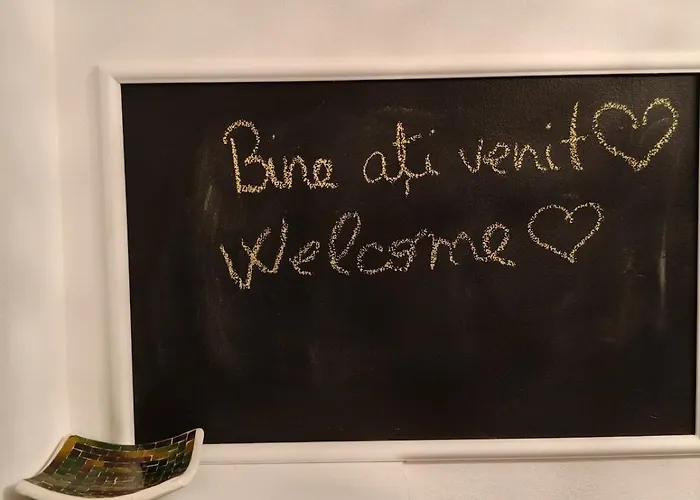 Bine ați venit♡
Welcome ♡